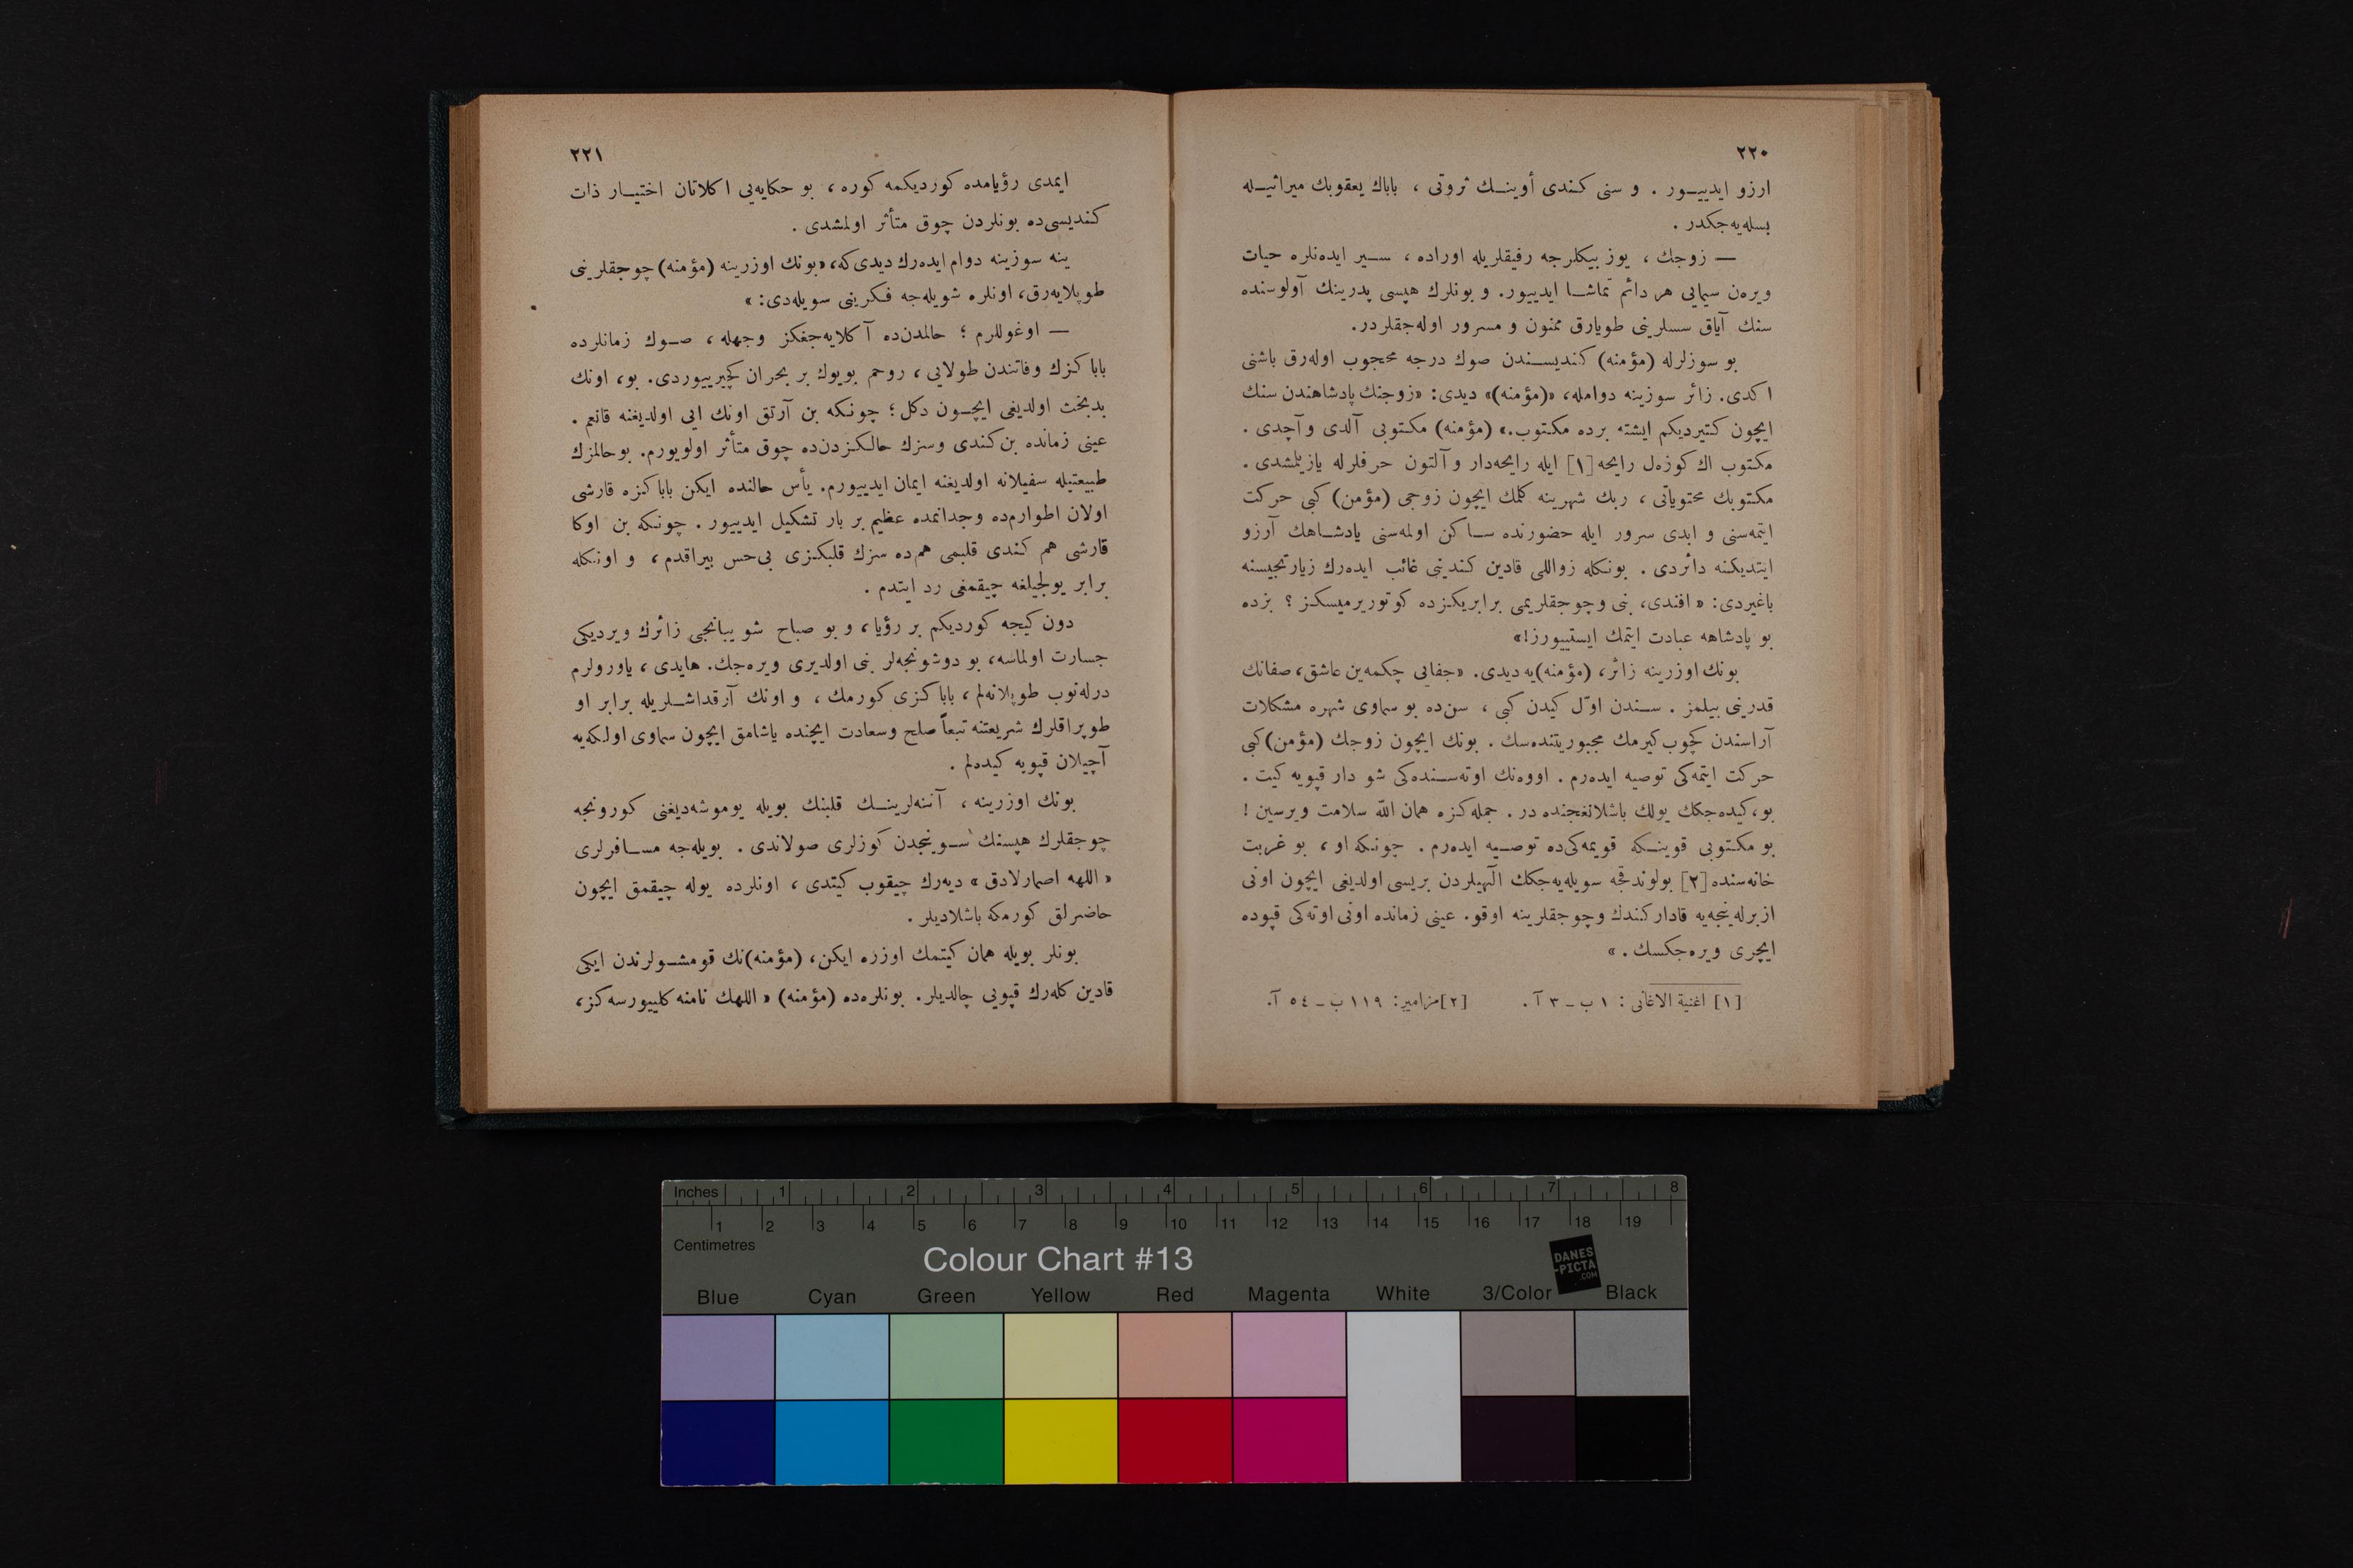 ٢٢٠
ارزو ایدییـور . و سنی كندی أوینـك ثروتی ، باباك یعقوبك میراثیـله
بسله‌یه‌جكدر .
— زوجك ، یوز بیكلرجه رفیقلریله اوراده ، سـیر ایده‌نلره حیات
ویره‌ن سیمایی هر دائم تماشـا ایدییور. و بونلرك هپسی پدرینك آولوسنده
سنك آیاق سسلرینی طویارق ممنون و مسرور اوله‌جقلردر.
بو سوزلرله (مؤمنه) كندیسـندن صوك درجه محجوب اوله‌رق باشنی
اكدی. زائر سوزینه دوامله، «(مؤمنه)» دیدی: «زوجنك پادشاهندن سنك
ایچون كتیردیكم ایشته برده مكتوب.» (مؤمنه) مكتوبی آلدی و آچدی .
مكتوب اك كوزه‌ل رایحه[١] ایله رایحه‌دار و آلتون حرفلرله یازیلمشدی .
مكتوبك محتویاتی ، ربك شهرینه كلمك ایچون زوجی (مؤمن) كبی حركت
ایتمه‌سنی و ابدی سرور ایله حضورنده سـاكن اولمه‌سنی پادشـاهك آرزو
ایتدیكنه دائردی . بونكله زواللی قادین كندینی غائب ایده‌رك زیارتجیسنه
باغیردی: « افندی، بنی وچوجقلریمی برابریكزده كوتوریرمیسكز ؟ بزده
بو پادشاهه عبادت ایتمك ایستییورز!»
بونك اوزرینه زائر، (مؤمنه)یه دیدی. «جفایی چكمه‌ین عاشق، صفانك
قدرینی بیلمز . سـندن اوّل كیدن كبی ، سن‌ده بو سماوی شهره مشكلات
آراسندن كچوب كیرمك مجبوریتنده‌سك . بونك ایچون زوجك (مؤمن) كبی
حركت ایتمه‌كی توصیه ایده‌رم . اووه‌نك اوته‌سـنده‌كی شو دار قپویه كیت .
بو، كیده‌جكك یولك باشلانغجنده در . جمله‌كزه همان اللّه سلامت ویرسین !
بو مكتوبی قوینـكه قویمه‌كی‌ده توصـیه ایده‌رم . چونكه او ، بو غربت
خانه‌سنده [٢] بولوندقجه سویله‌یه‌جكك الٓهیلردن بریسی اولدیغی ایچون اونی
ازبرله‌ینجه‌یه قادار كندك وچوجقلرینه اوقو. عینی زمانده اونی اوته‌كی قپوده
ایچری ویره‌جكسك . »
[١] اغنیة الاغانی : ١ ب ــ ٣ آ . [٢] مزامیر: ١١٩ ب ــ ٥٤ آ.
٢٢١
ایمدی رؤیامده كوردیكمه كوره ، بو حكایه‌یی اكلاتان اختیـار ذات
كندیسی‌ده بونلردن چوق متأثر اولمشدی .
ینه سوزینه دوام ایده‌رك دیدی‌كه، «بونك اوزرینه (مؤمنه) چوجقلرینی
طوپلایه‌رق، اونلره شویله‌جه فكرینی سویله‌دی: »
— اوغوللرم ؛ حالمدن‌ده آكلایه‌جغكز وجهله ، صـوك زمانلرده
باباكزك وفاتندن طولایی ، روحم بویوك بر بحران كچیرییوردی. بو، اونك
بدبخت اولدیغی ایچـون دكل ؛ چونكه بن آرتق اونك ایی اولدیغنه قانعم .
عینی زمانده بن كندی وسزك حالكزدن‌ده چوق متأثر اولویورم. بوحالمزك
طبیعتیله سفیلانه اولدیغنه ایمان ایدییورم. یأس حالنده ایكن باباكزه قارشی
اولان اطوارم‌ده وجدانمده عظیم بر بار تشكیل ایدییور . چونكه بن اوكا
قارشی هم كندی قلبمی هم‌ده سزك قلبكزی بی‌حس بیراقدم ، و اونكله
برابر یولجیلغه چیقمغی رد ایتدم .
دون كیجه كوردیكم بر رؤیا، و بو صباح شو یبانجی زائرك ویردیكی
جسارت اولماسه، بو دوشونجه‌لر بنی اولدیری ویره‌جك. هایدی ، یاورولرم
درله‌نوب طوپلانه‌لم ، باباكزی كورمك ، و اونك آرقداشـلریله برابر او
طوپراقلرك شریعتنه تبعاً صلح وسعادت ایچنده یاشامق ایچون سماوی اولكه‌یه
آچیلان قپویه كیده‌لم .
بونك اوزرینه ، آننه‌لرینـك قلبنك بویله یوموشه‌دیغنی كورونجه
چوجقلرك هپسنك سـوینجدن كوزلری صولاندی . بویله‌جه مسـافرلری
« اللهه اصمارلادق » دیه‌رك چیقوب كیتدی ، اونلرده یوله چیقمق ایچون
حاضرلق كورمكه باشلادیلر .
بونلر بویله همان كیتمك اوزره ایكن، (مؤمنه)نك قومشـولرندن ایكی
قادین كله‌رك قپویی چالدیلر. بونلره‌ده (مؤمنه) « اللهك نامنه كلییورسه‌كز،
Inches 1 2 3 4 5 6 7 8
1 2 3 4 5 6 7 8 9 10 11 12 13 14 15 16 17 18 19
Centimetres
Colour Chart #13
DANES
-PICTA
.COM
Blue Cyan Green Yellow Red Magenta White 3/Color Black